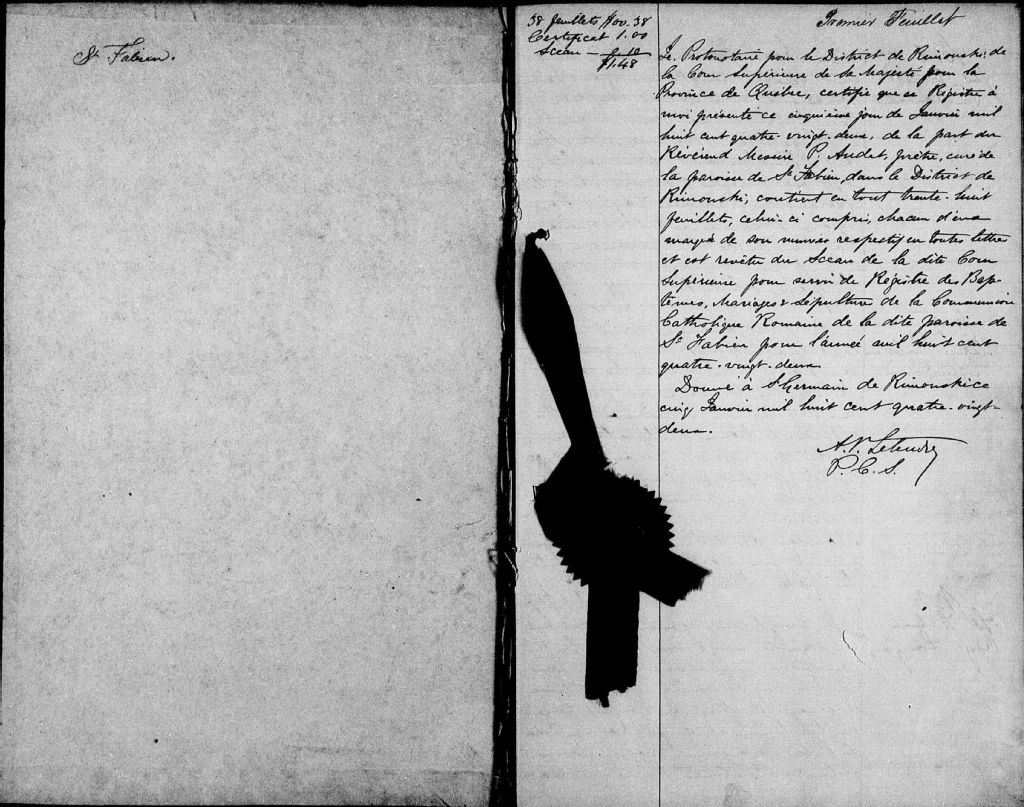 St Fabien.
38 feuillets $0.38
Certificat 1.00
Sceau — 0.10
$1.48
Premier Feuillet
Le Protonotaire pour le District de Rimouski de
la Cour Supérieure de Sa Majesté pour la
Province de Québec, certifie que ce Régistre à
moi présenté ce cinquième jour de Janvier mil
huit cent quatre-vingt-deux, de la part du
Révérend Messire P. Audet, prêtre, curé de
la paroisse de St Fabien, dans le District de
Rimouski, contient en tout trente-huit
feuillets, celui-ci compris, chacun d'eux
marqué de son numéro respectif en toutes lettres
et est revêtu du Sceau de la dite Cour
Supérieure pour servir de Régistre des Bap-
têmes, Mariages & Sépulture de la Communion
Catholique Romaine de la dite paroisse de
St Fabien pour l'année mil huit cent
quatre-vingt-deux
Donné à St Germain de Rimouski ce
cinq Janvier mil huit cent quatre-vingt-
deux.
P.C.S.